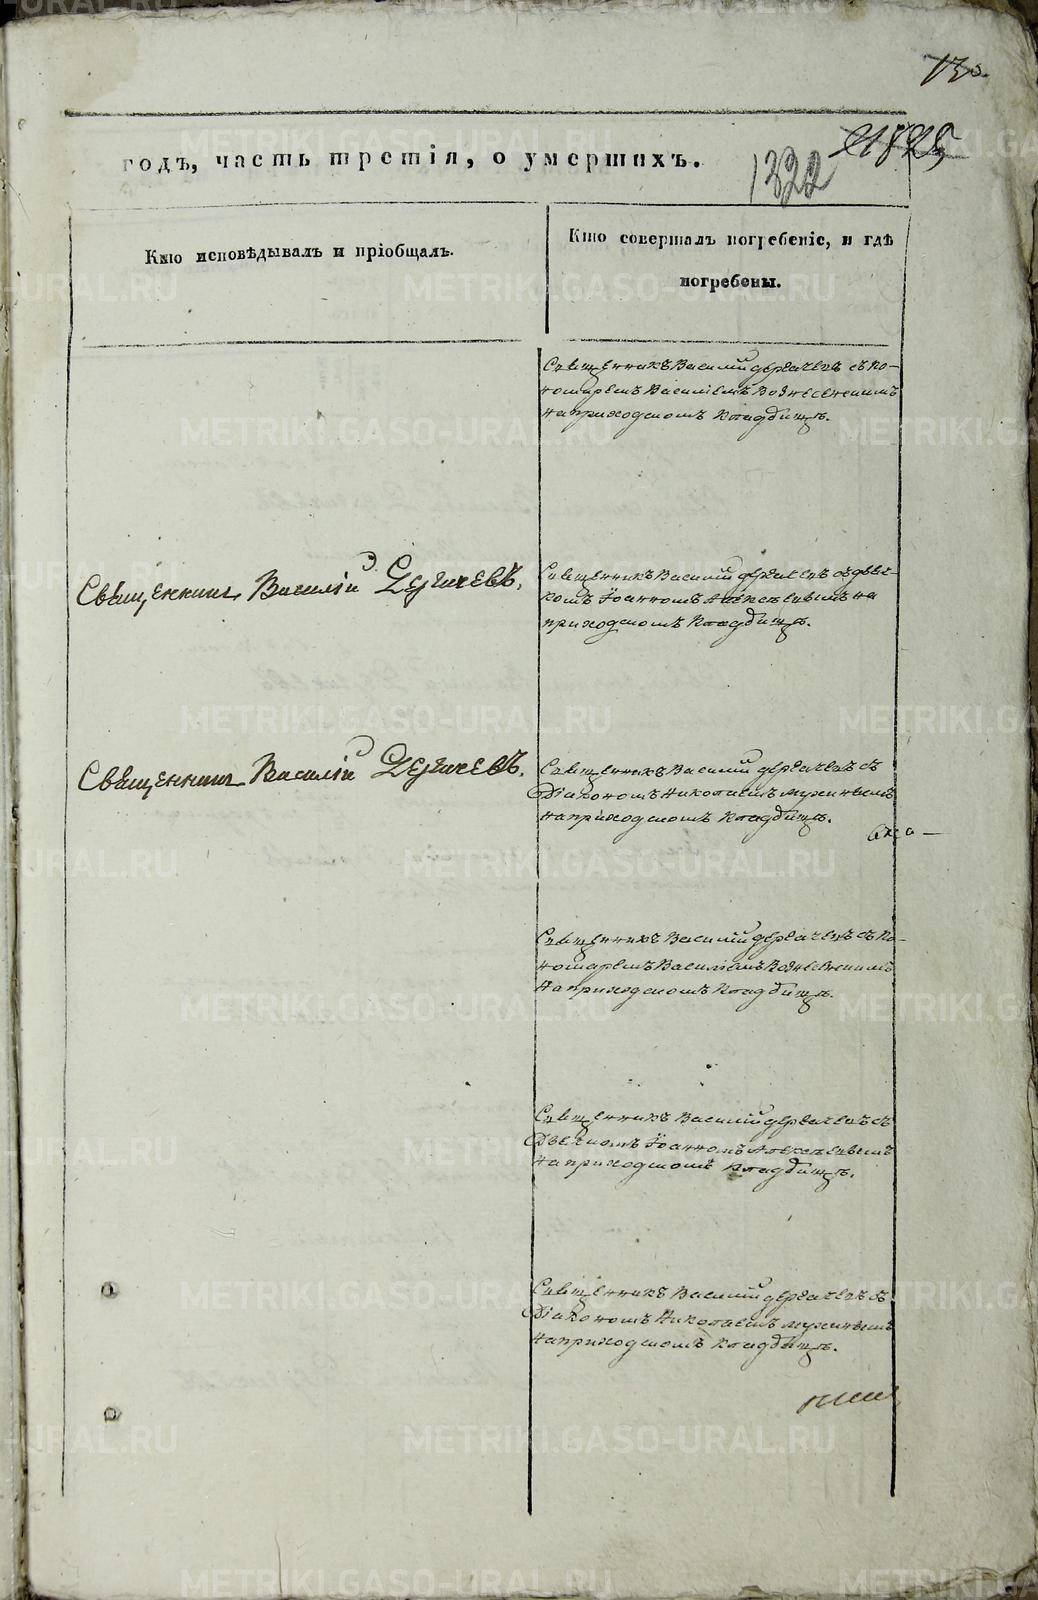 годъ, часть третія, о умершихъ.
1322
Кто исповѣдывалъ и пріобщалъ.
Кто совершалъ погребеніе, и гдѣ
погребены.
Священникъ Василій Дергачевъ съ по-
номаремъ Василіемъ Вознесенскимъ
на приходскомъ кладбищѣ.
Священникъ Василій Дергачевъ,
Священникъ Василій Дергачевъ съ дьяч-
комъ Іоанномъ Алексѣевымъ на
приходскомъ кладбищѣ.
Священникъ Василій Дергачевъ.
Священникъ Василій Дергачевъ съ
Діакономъ Николаемъ
на приходскомъ кладбищѣ.
Священникъ Василій Дергачевъ съ по-
номаремъ Василіемъ Вознесенскимъ
на приходскомъ кладбищѣ.
Священникъ Василій Дергачевъ съ
Дьячкомъ Іоанномъ Алексѣевымъ
на приходскомъ кладбищѣ.
Священникъ Василій Дергачевъ съ
Діакономъ Николаемъ
на приходскомъ кладбищѣ.
METRIKI.GASO-URAL.RU